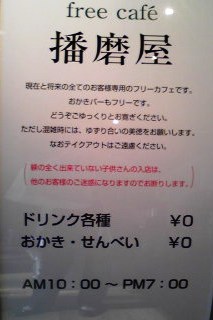 free café
播磨屋
現在と将来の全てのお客様専用のフリーカフェです。
おかきバーもフリーです。
どうぞごゆっくりとお寛ぎください。
ただし混雑時には、ゆずり合いの美徳をお願いします。
なおテイクアウトはご遠慮ください。
躾の全く出来ていない子供さんの入店は、
他のお客様のご迷惑になりますのでお断りします。
ドリンク各種 ¥0
おかき・せんべい ¥0
AM10：00～PM7：00